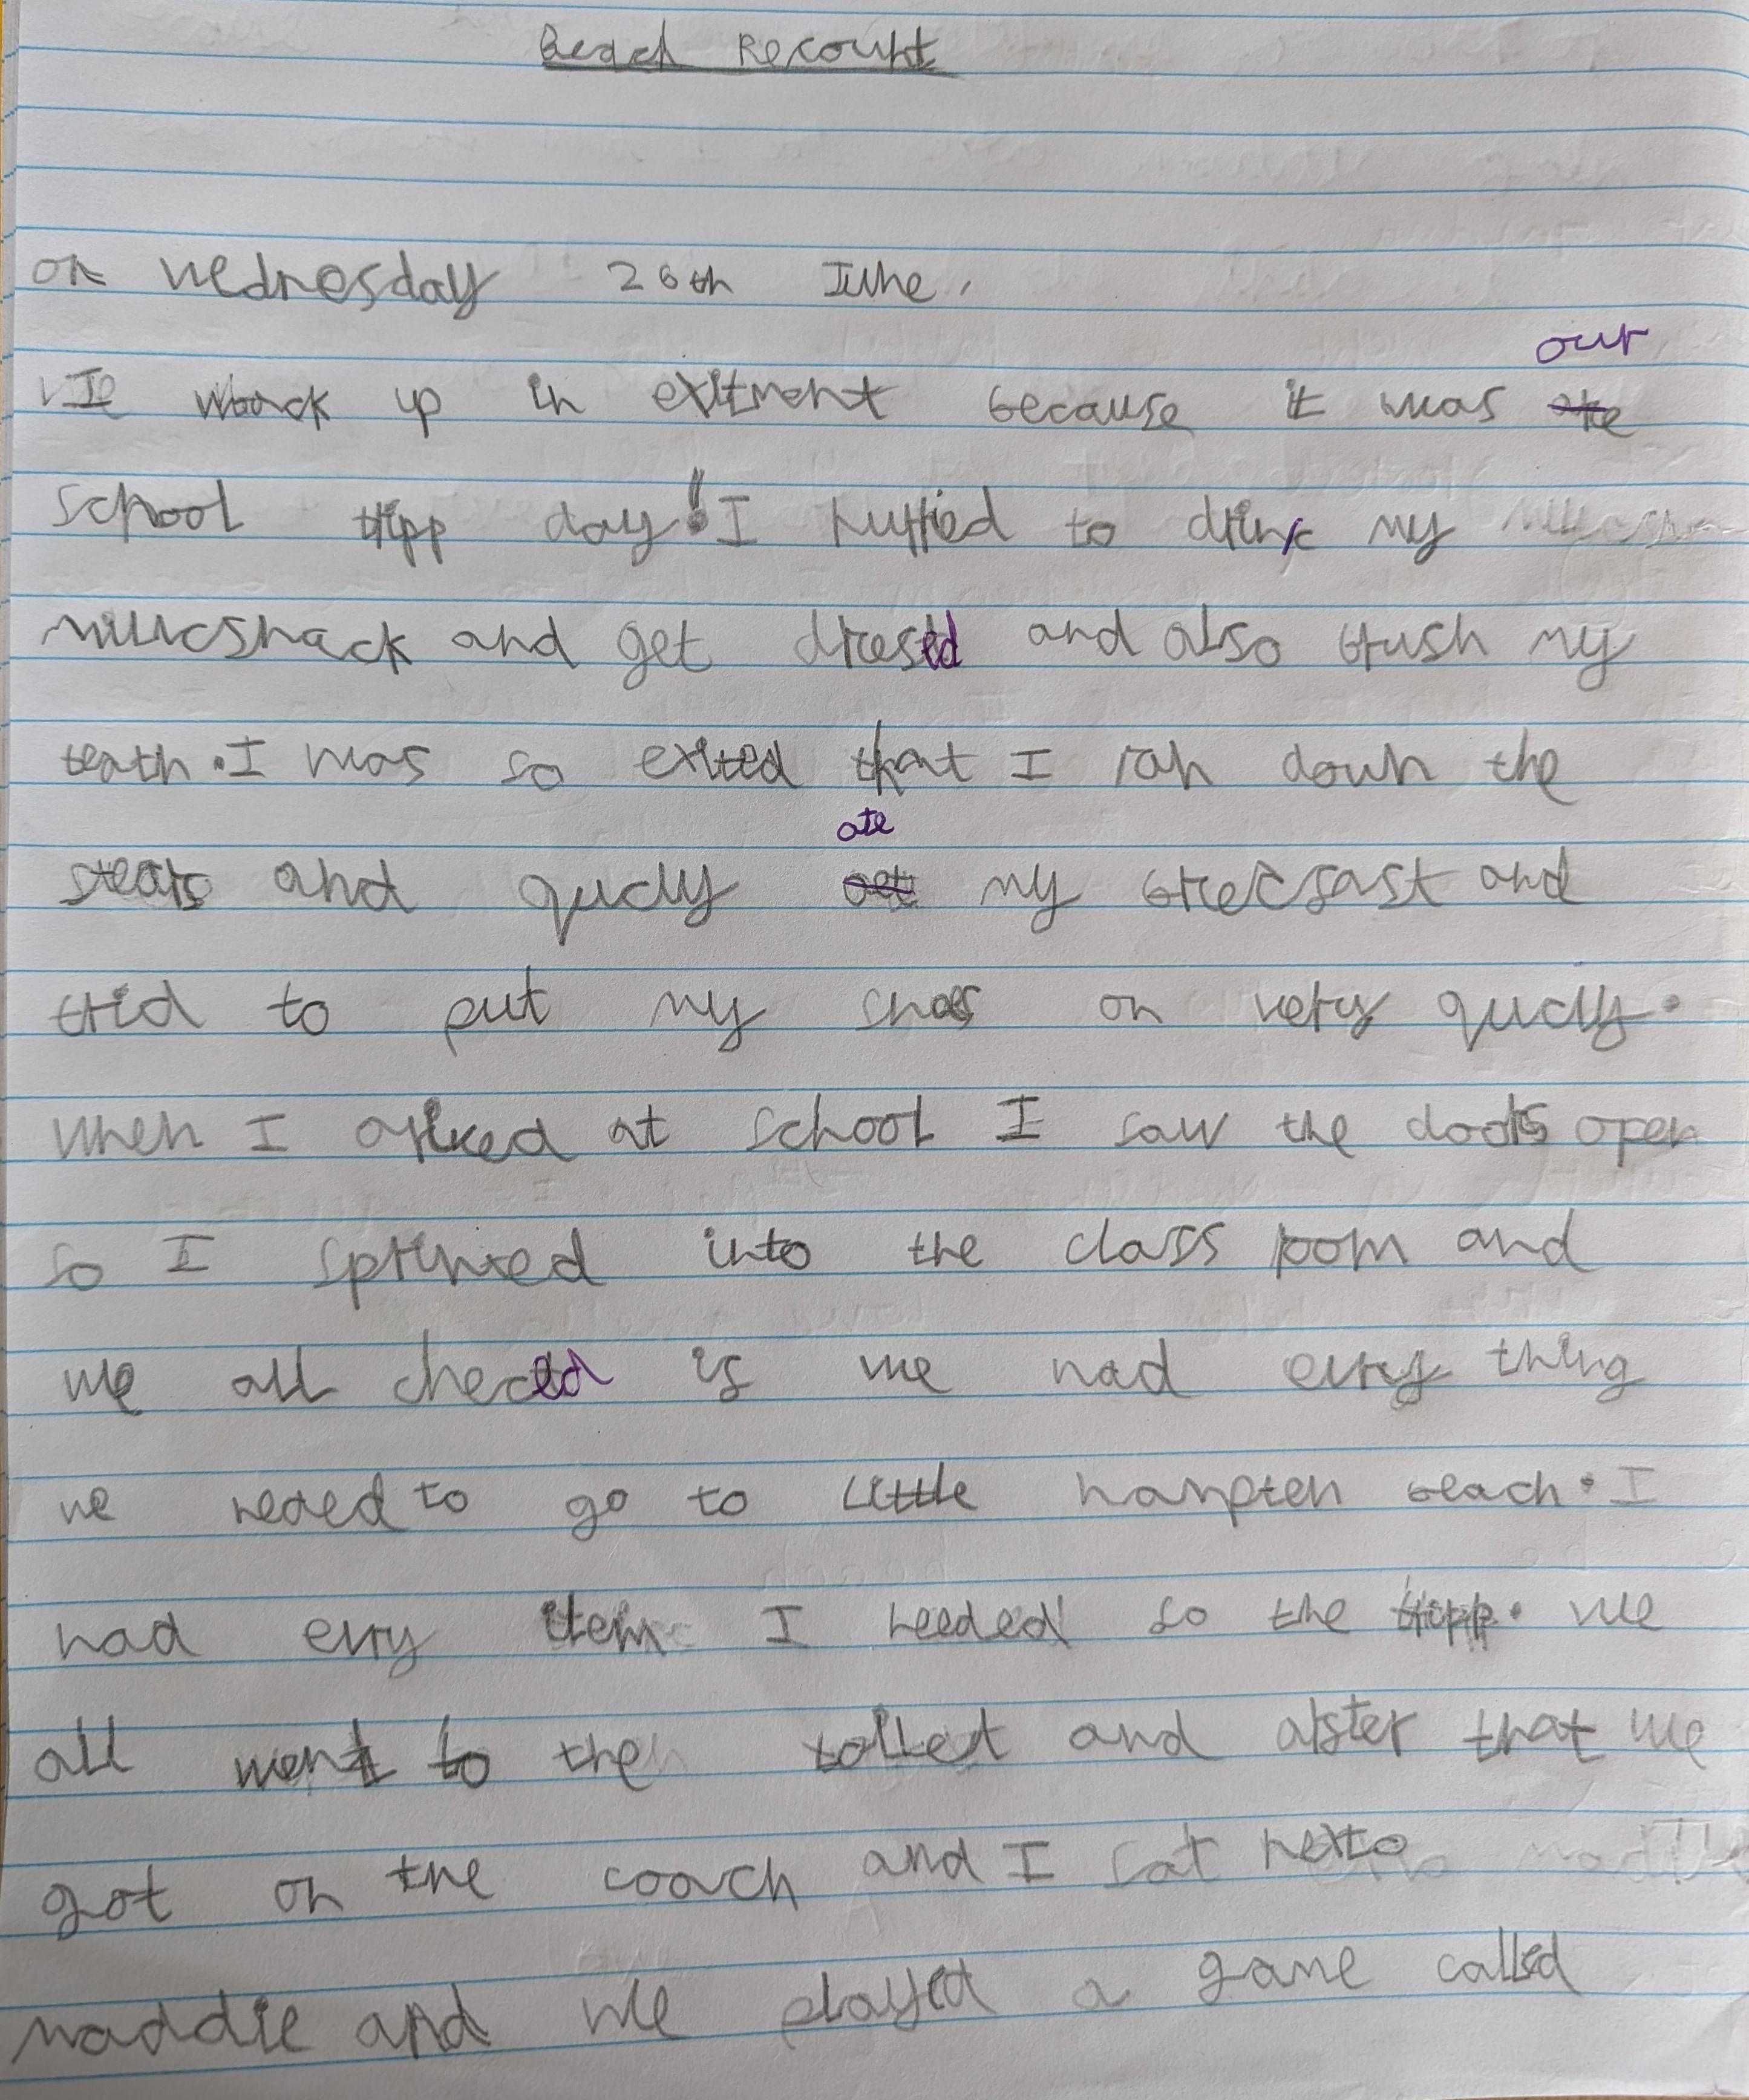 Beach Recount
on wednesday 26th June.
I woack up in exitment because it was our
school tripp day! I hurried to drink my
milkshack and get dresed and also brush my
teath. I was so exited that I ran down the
stears and qucly ate my brecfast and
trid to put my shoes on very qucly.
when I arived at school I saw the doors open
so I sprinted into the class room and
we all checed if we had evry thing
we neded to go to Little hampten beach. I
had evry item I needed fo the tripp. we
all went to the toilet and after that we
got on the coach and I sat nexto
maddie and we played a game called